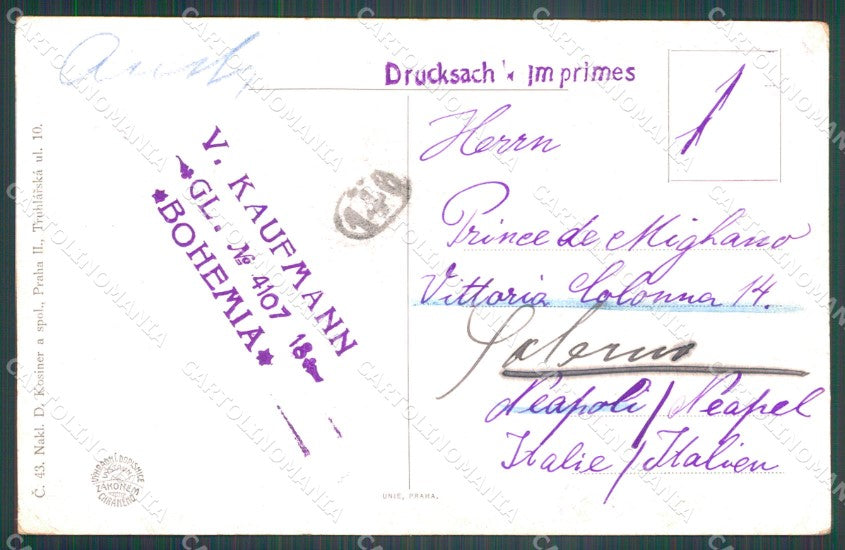 Drucksach * Imprimes
V. KAUFMANN
GL. No 4107 18
BOHEMIA
140
Herrn
Prince de Mighano
Vittoria Colonna 14.
Salerno
Neapoli / Neapel
Italie / Italien
Č. 43. Nakl. D. Kosiner a spol., Praha II., Truhlářská ul. 10.
UNIE, PRAHA.
CARTOLINOMANIA